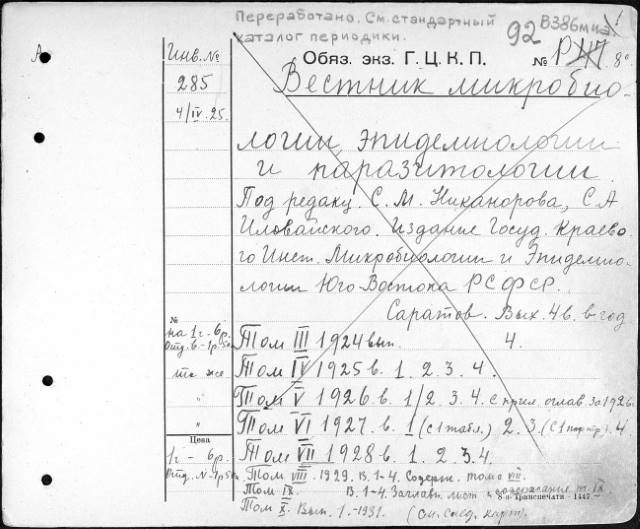 Переработано. См. стандартный
каталог периодики.
92 В386мик
А
Инв. №
285
4/IV.25.
Обяз. экз. Г. Ц. К. П.
№ Р47 8°
Вестник микробио-
логии, эпидемиологии
и паразитологии.
Под редакц. С. М. Никанорова, С. А
Иловайского. Издание Госуд. Краево-
го Инст. Микробиологии и Эпидемио-
логии Юго Востока РСФСР.
Саратов. Вых. 4 в. в год
№
на 1 г. - 6 р.
Отд. в. - 1 р. 50 к.
Том III 1924 вып. 4.
та же Том IV 1925 в. 1. 2. 3. 4.
" Том V 1926 в. 1/2. 3. 4. с прил. оглав. за 1926.
" Том VI 1927 в. 1 (с 1 табл.) 2. 3. (с 1 портр.) 4
Цена
1 г - 6 р.
Отд. № - 1 р. 50 к.
Том VII 1928 в. 1. 2. 3. 4.
Том VIII. 1929. В. 1-4. Содерж. тома VII.
Том IX. В. 1-4. Заглавн. лист и содержание т. IX
8-я Транспечати - 1447.
Том X. Вып. 1. - 1931. (См. след. карт.)